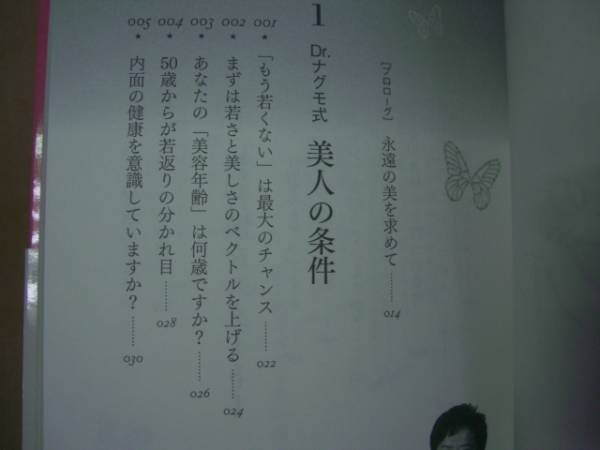 [プロローグ] 永遠の美を求めて……… 014
1 Dr.ナグモ式 美人の条件
001 ★ 「もう若くない」は最大のチャンス……… 022
002 ★ まずは若さと美しさのベクトルを上げる……… 024
003 ★ あなたの「美容年齢」は何歳ですか？……… 026
004 ★ 50歳からが若返りの分かれ目……… 028
005 ★ 内面の健康を意識していますか？……… 030